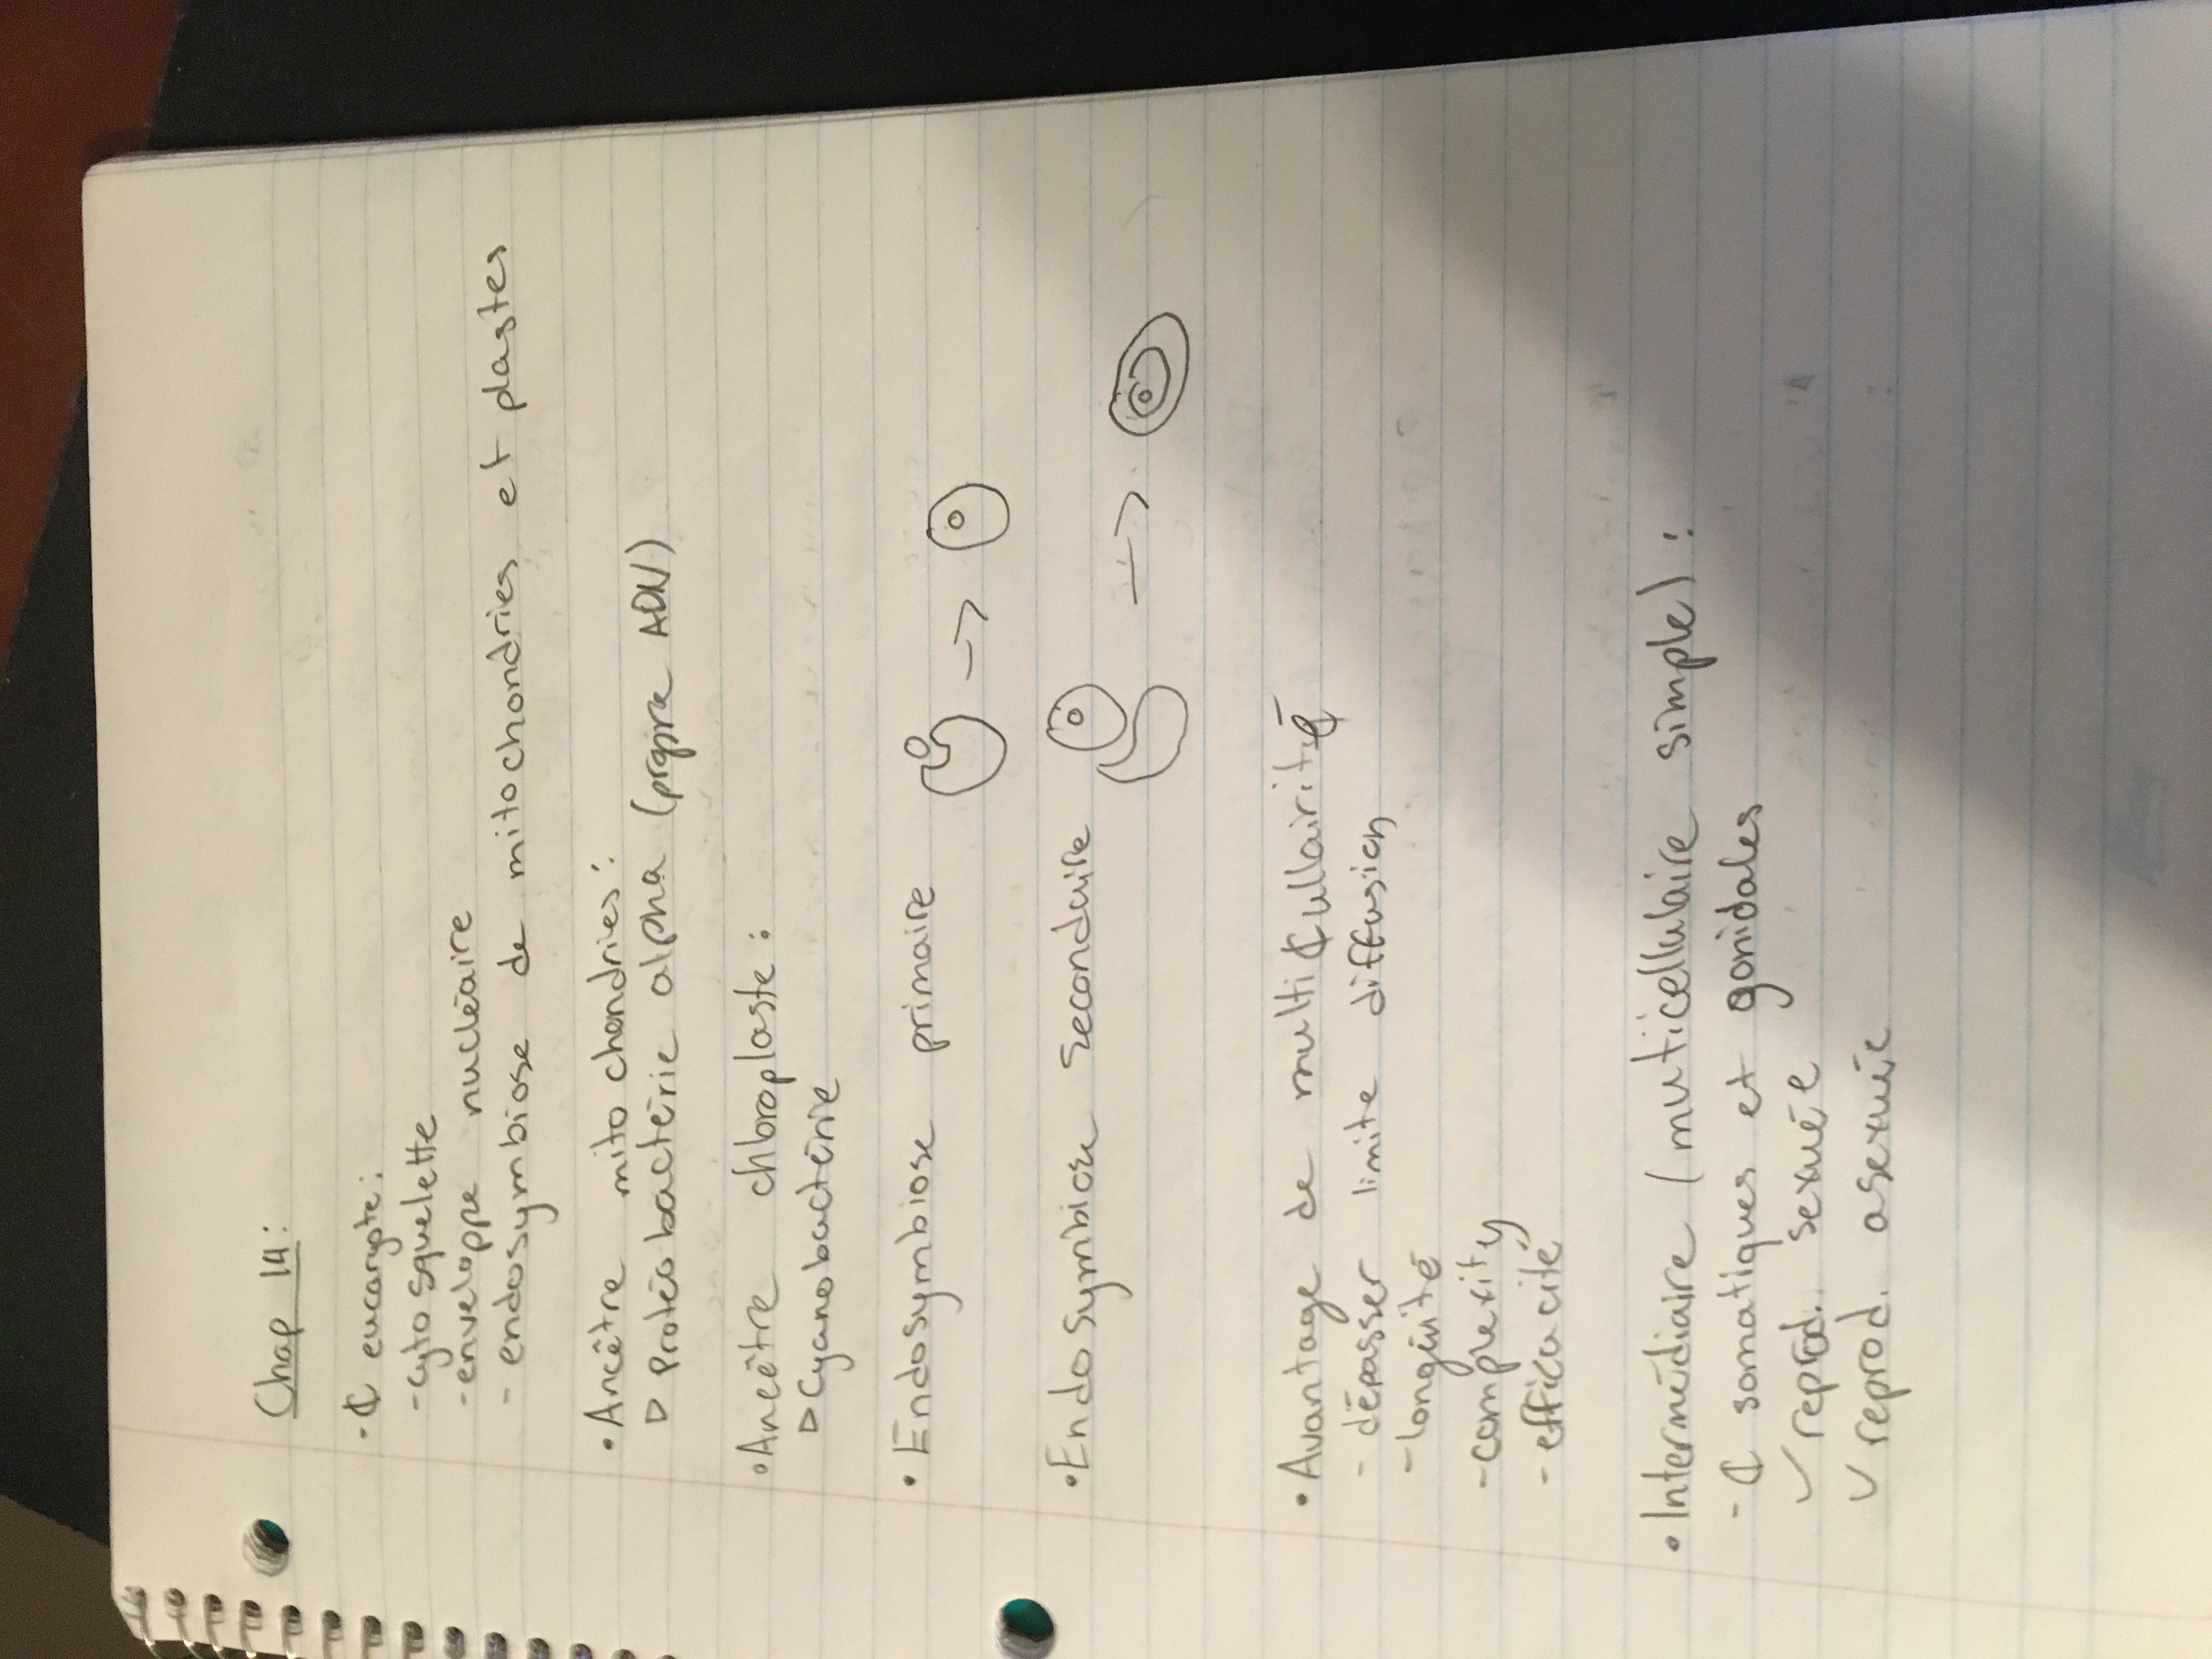 Chap 14:
• ₵ eucaryote:
- cytosquelette
- enveloppe nucléaire
- endosymbiose de mitochondries et plastes
• Ancêtre mitochondries:
▷ Protéobactérie alpha (propre ADN)
• Ancêtre chloroplaste:
▷ Cyanobactérie
• Endosymbiose primaire -->
• Endosymbiose secondaire -->
• Avantage de multi₵ullairité
- dépasser limite diffusion
- longévité
- complexity
- efficacité
• Intermédiaire (muticellulaire simple):
- ₵ somatiques et gonidales
✓ reprod. sexuée
✓ reprod. asexuée